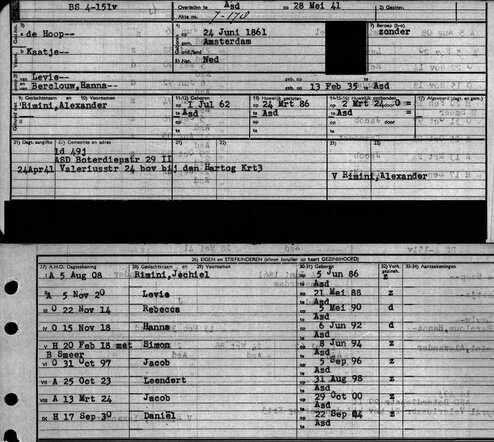 BS 4-151v
Overleden te Asd op 28 Mei 41
Akte no. 7-178
de Hoop--
Kaatje--
24 Juni 1861
Amsterdam
Ned
zonder
Levie--
Berclouw, Hanna-- geh. op 13 Feb 35 te Asd
Rimini, Alexander
op 1 Jul 62 te Asd
op 24 Mrt 86 te Asd
op 2 Mrt 24 O =
te Asd door
1d 49j
ASD Boterdiepstr 29 II
24Apr41 Valeriusstr 24 bov bij den Hartog Krt3
V Rimini, Alexander
26) EIGEN EN STIEFKINDEREN
A 5 Aug 08 Rimini, Jechiel 5 Jun 86 Asd z
A 5 Nov 20 Levie 21 Mei 88 Asd z
O 22 Nov 14 Rebecca 5 Mei 90 Asd d
O 15 Nov 18 Hanna 6 Jun 92 Asd d
H 20 Feb 18 met B Smeer Simon 8 Jun 94 Asd z
O 31 Oct 97 Jacob 5 Sep 96 Asd z
A 25 Oct 23 Leendert 31 Aug 98 Asd z
A 13 Mrt 24 Jacob 29 Oct 00 Asd z
H 17 Sep 30 Daniël 22 Sep 04 Asd z